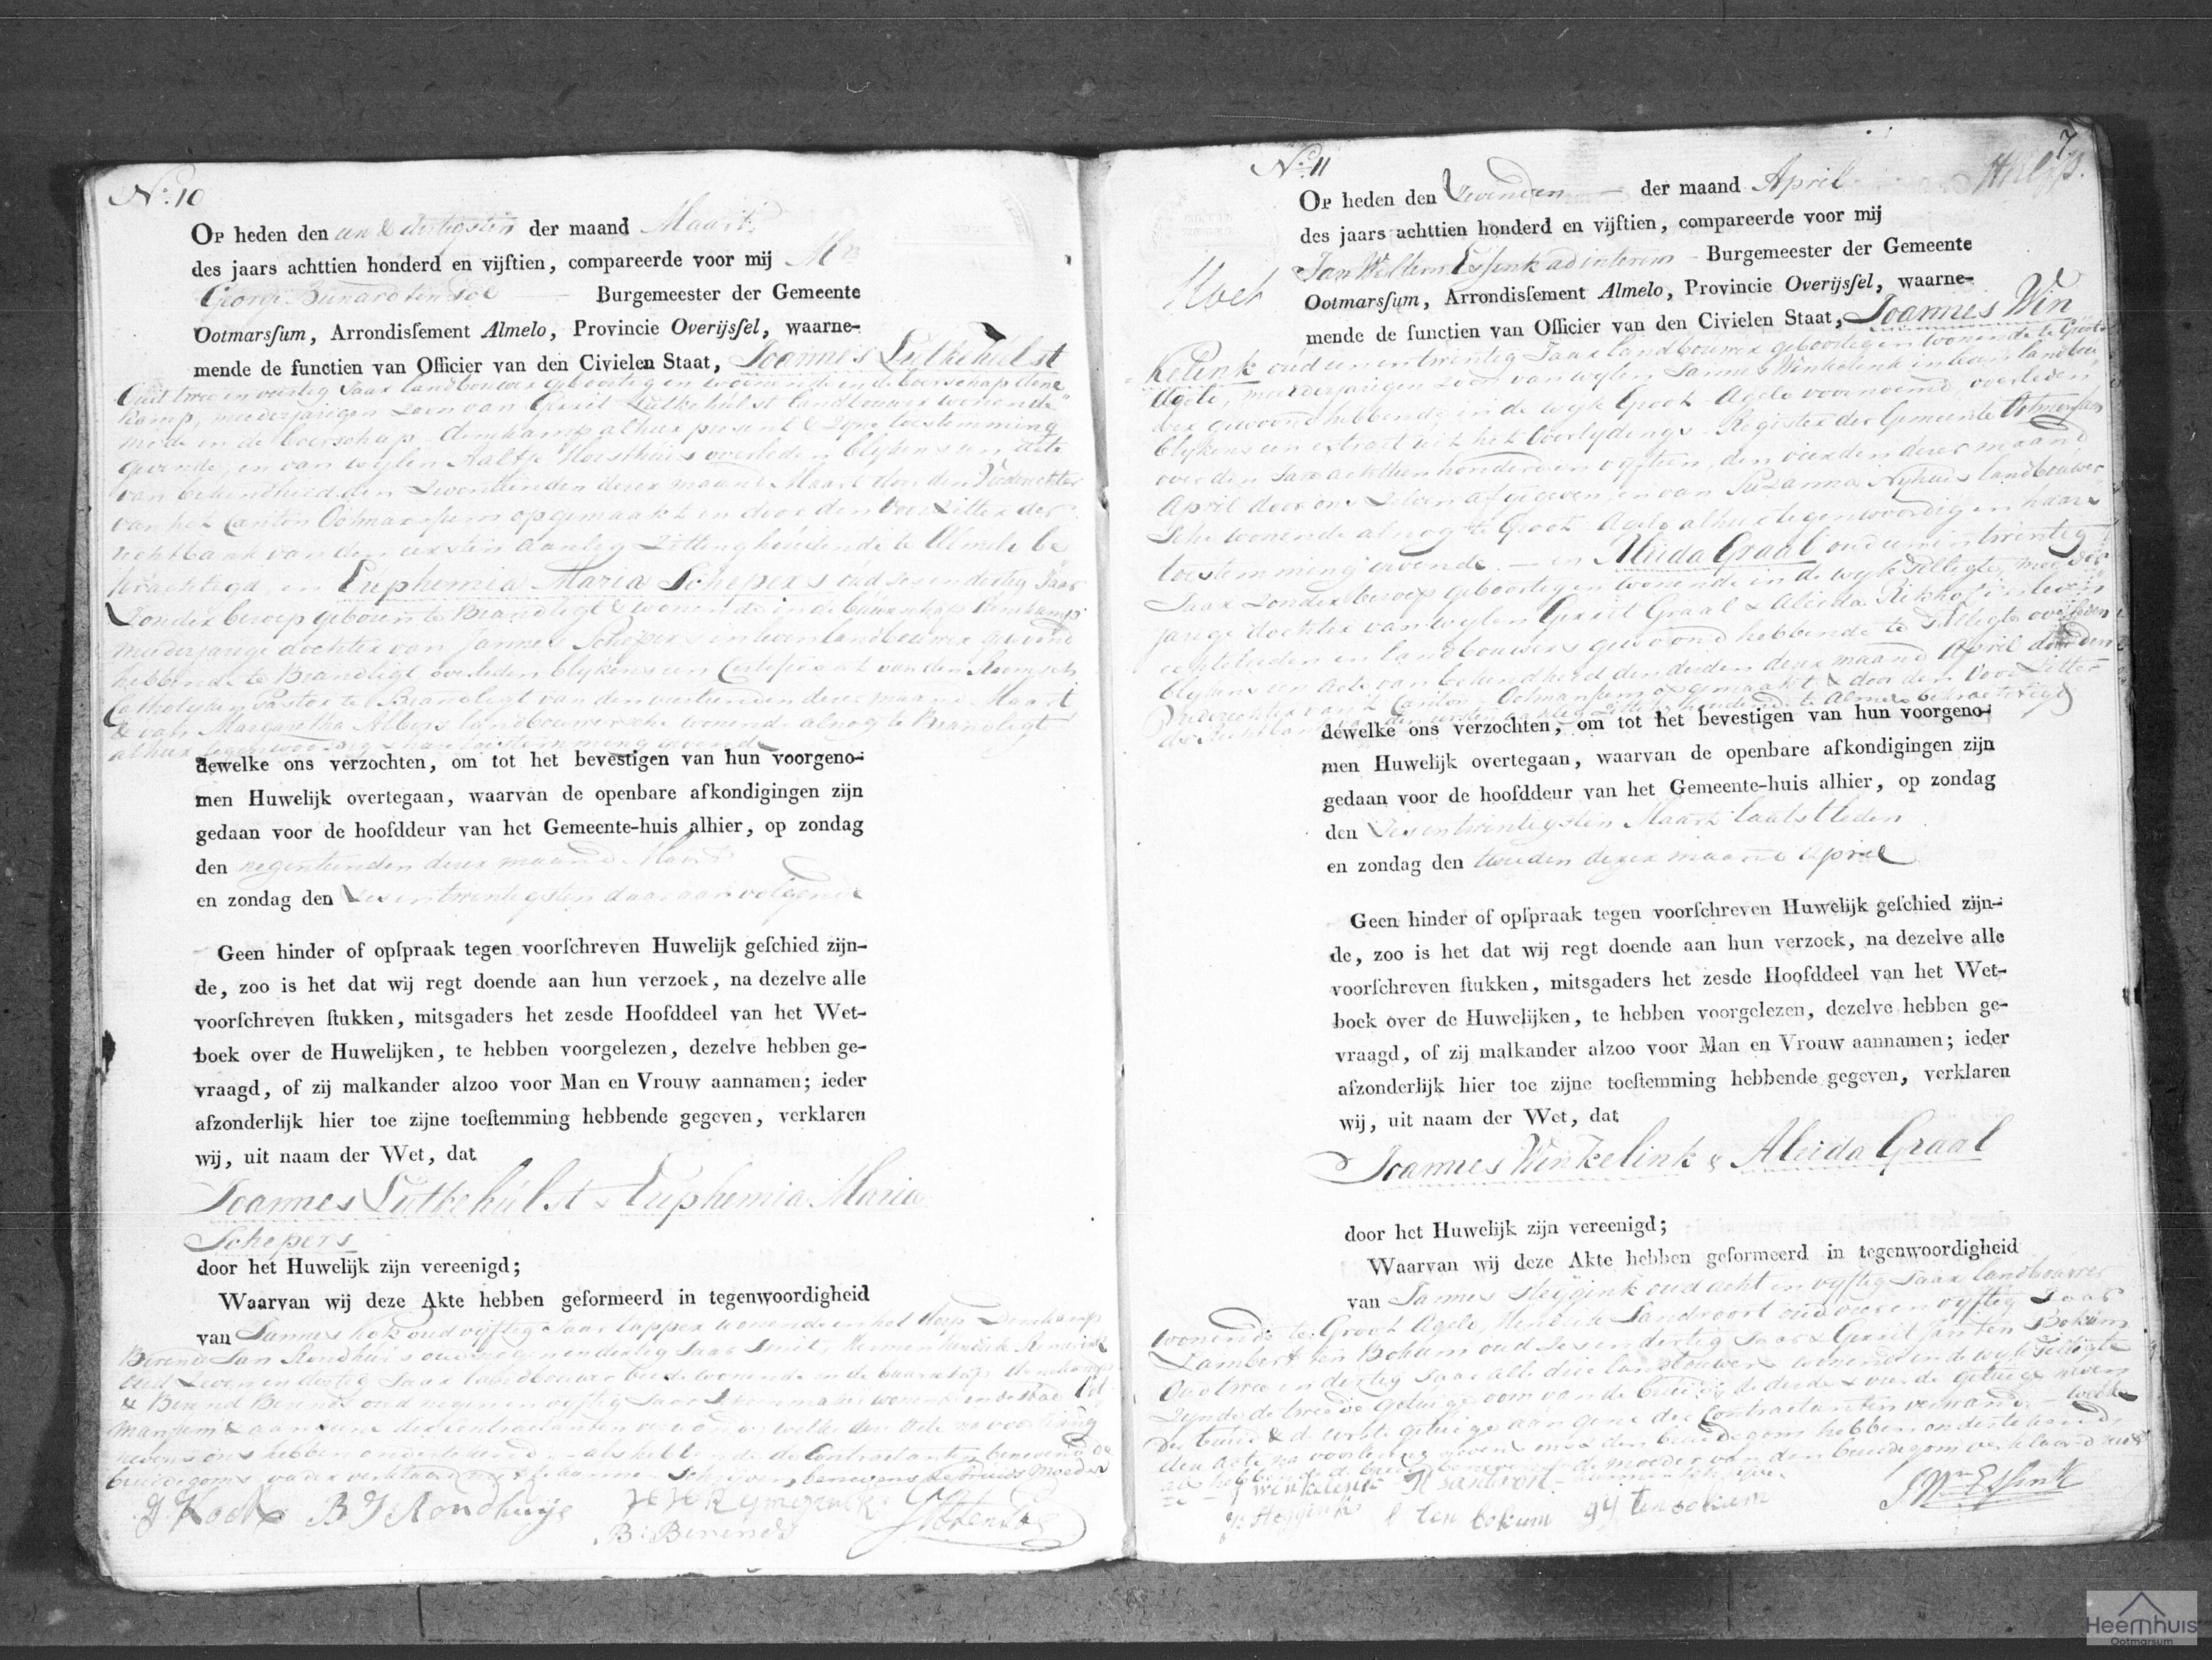 No. 10
Op heden den een & dertigsten der maand Maart
des jaars achttien honderd en vijftien, compareerde voor mij Mr
George Bernard ten Pol Burgemeester der Gemeente
Ootmarsſum, Arrondisſement Almelo, Provincie Overijsſel, waarne-
mende de functien van Officier van den Civielen Staat, Joannes Lutkehulst
Oud twee en veertig Jaar landbouwer geboortig en woonende in de boerschap Dene
kamp, meerderjarigen zoon van Gerrit Lutkehulst landbouwer wonende
mede in de boerschap Denekamp alhier present & zyne toestemming
gevende, en van wylen Aaltje overleden blykens een acte
van bekendheid den zeventienden dezer maand Maart door den Vrederechter
van het Canton Ootmarssum opgemaakt en door den Voorzitter der
rechtbank van den eersten aanleg zitting houdende te Almelo be
krachtigd, en Euphemia Maria Schepers oud zes en dertig Jaar
Zonder beroep geboren te Brandligt & wonende in de buurschap Denekamp
meerderjarige dochter van Jannes Schepers in leven landbouwer gewoond
hebbende te Brandligt overleden blykens een Certificaat van den Roomsch
Catholyken Pastor te Brandligt van den veertienden dezer maand Maart
& van Margaretha Albers landbouwersche wonende alnog te Brandligt
alhier tegenwoordig & haar toestemming gevende
dewelke ons verzochten, om tot het bevestigen van hun voorgeno-
men Huwelijk overtegaan, waarvan de openbare afkondigingen zijn
gedaan voor de hoofddeur van het Gemeente-huis alhier, op zondag
den negentienden dezer maand Maart
en zondag den zes en twentigsten daar aan volgende
Geen hinder of opſpraak tegen voorſchreven Huwelijk geſchied zijn-
de, zoo is het dat wij regt doende aan hun verzoek, na dezelve alle
voorſchreven ſtukken, mitsgaders het zesde Hoofddeel van het Wet-
boek over de Huwelijken, te hebben voorgelezen, dezelve hebben ge-
vraagd, of zij malkander alzoo voor Man en Vrouw aannamen; ieder
afzonderlijk hier toe zijne toeſtemming hebbende gegeven, verklaren
wij, uit naam der Wet, dat
Joannes Lutkehulst & Euphemia Maria
Schepers
door het Huwelijk zijn vereenigd;
Waarvan wij deze Akte hebben geformeerd in tegenwoordigheid
van Jannes Kok oud vyftig Jaar tapper wonende in het dorp Denekamp
Berend Jan Rondhuis oud negen en dertig Jaar Smit, Hermen Hendrik
oud zeven en dertig Jaar landbouwer beide wonende in de buurschap Denekamp
& Berend Berends oud negen en vyftig Jaar wonende in de stad Oot
marssum & aan gene der contractanten verwand, welke den Acte na voorlezing
nevens ons hebben ondertekend, als hebbende de Contractanten benevens de
bruidegoms vader verklaard niet te kunnen Schryven, benevens de bruids moeder
J Kock B J Rondhuijs
B: Berends
No. 11
7
Op heden den Zevenden der maand April
des jaars achttien honderd en vijftien, compareerde voor mij
Jan Willem Essink ad interim Burgemeester der Gemeente
Ootmarsſum, Arrondisſement Almelo, Provincie Overijsſel, waarne-
mende de functien van Officier van den Civielen Staat, Joannes Win
kelink oud een en twentig Jaar landbouwer geboortig en wonende te Groot
Agele, meerderjarigen zoon van wylen Jannes Winkelink in leven landbou
wer gewoond hebbende in de wyk Groot Agele voornoemd, overleden
blykens een extract uit het Overlydings Register der Gemeente Ootmarssum
over den Jare achttienhonderd en vyftien, den vierden dezer maand
April door ons zelven afgegeven, en van Suzanna Nyhuis landbouwer
sche wonende alnog te Groot Agele alhier tegenwoordig en haare
toestemming gevende. — en Aleida Graal oud een en twentig
Jaar zonder beroep geboortig en wonende in de wyk Tilligte, meerder
jarige dochter van wylen Gerrit Graal & Aleida Rikhof in leven
echtelieden en landbouwers gewoond hebbende te Tilligte overleden
blykens een acte van bekendheid den derden dezer maand April door den
Vrederechter van 't Canton Ootmarssum opgemaakt & door den Voorzitter
dewelke ons verzochten, om tot het bevestigen van hun voorgeno-
men Huwelijk overtegaan, waarvan de openbare afkondigingen zijn
gedaan voor de hoofddeur van het Gemeente-huis alhier, op zondag
den Zes en twentigsten Maart laatstleden
en zondag den tweeden dezer maand April
Geen hinder of opſpraak tegen voorſchreven Huwelijk geſchied zijn-
de, zoo is het dat wij regt doende aan hun verzoek, na dezelve alle
voorſchreven ſtukken, mitsgaders het zesde Hoofddeel van het Wet-
boek over de Huwelijken, te hebben voorgelezen, dezelve hebben ge-
vraagd, of zij malkander alzoo voor Man en Vrouw aannamen; ieder
afzonderlijk hier toe zijne toeſtemming hebbende gegeven, verklaren
wij, uit naam der Wet, dat
Joannes Winkelink & Aleida Graal
door het Huwelijk zijn vereenigd;
Waarvan wij deze Akte hebben geformeerd in tegenwoordigheid
van Jannes Steggink oud acht en vyftig Jaar landbouwer
wonende te Groot Agele, Hendrik Sandvoort oud vier en vyftig Jaar
Lambert ten Bokum oud zes en dertig Jaar & Gerrit Jan ten Bokum
Oud twee en dertig Jaar alle drie landbouwers wonende in de wyk Tilligte
Zynde de tweede getuige oom van de bruid, de derde & vierde getuige neven
der bruid & de eerste getuige aan gene der Contractanten verwand, welke
den Acte na voorlezing nevens ons & den bruidegom hebben ondertekend
als hebbende de bruid benevens de moeder van den bruidegom verklaard niet
J winkelink H sandvort kunnen schryven
J Steggink l ten bokum g J ten bokum
J Wm Essink
Heemhuis
Ootmarsum